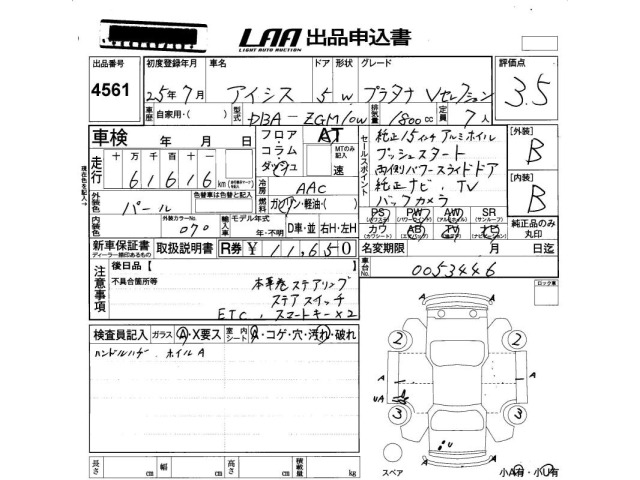 LAA 出品申込書
LIGHT AUTO AUCTION
出品番号 初度登録年月 車名 ドア 形状 グレード 評価点
4561 25年7月 アイシス 5 W プラタナ Vセレクション 3.5
車歴 自家用・( ) 型式 DBA-ZGM10W 排気量 1800cc 定員 7人
車検 年 月 日 フロア・コラム・ダッシュ AT MTのみ記入 速
セールスポイント 純正15インチアルミホイル
プッシュスタート
両側パワースライドドア
純正ナビ、TV
バックカメラ
[外装] B
[内装] B
走行 十 万 千 百 十
6 1 6 1 6 km
冷房 AAC
燃料 ガソリン・軽油・( )
外装色 パール 色替車は色替と記入
外装カラーNo. 070
輸入車 モデル年式 年・不明 D車・並 右H・左H
PS PW AW SR
カワ AB TV ナビ
純正品のみ丸印
新車保証書 取扱説明書 R券 ¥11,650 名変期限 月 日迄
ディーラー捺印あるもの
車台No. 0053446
注意事項 後日品【
不具合箇所等 本革巻ステアリング
ステアスイッチ
ETC、スマートキー×2
ロック車
検査員記入 ガラス A・X要ス 室内シート A・コゲ・穴・汚れ・破れ
ハンドルハゲ ホイルA
2 2
A A
A A
UA
3 3
U
A
スペア
小A有・小U有
長さ cm 幅 cm 高さ cm 積載量 kg
現在色を記入→